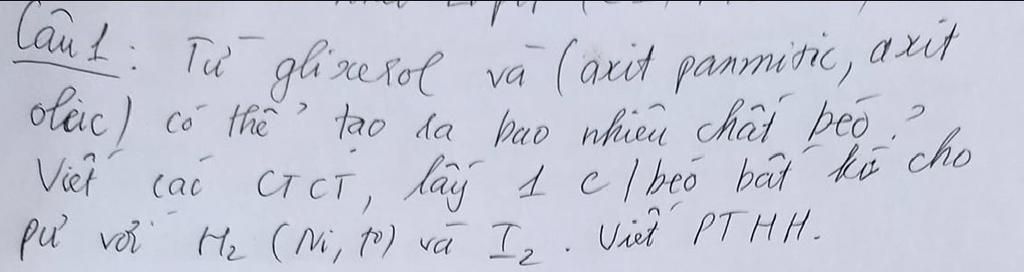 Câu 1: Từ glixerol và (axit panmitic, axit
oleic) có thể tạo ra bao nhiêu chất béo?
Viết các CTCT, lấy 1 c/béo bất kì cho
pư với H₂ (Ni, t⁰) và I₂. Viết PTHH.